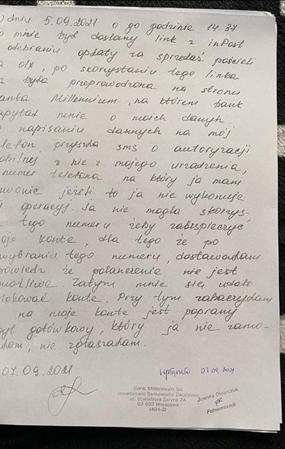 dniu 5.09.2021 o godzinie 14.37
mnie był dostany link z inPost
odibraniu opdaty za sprzedaż pościeli
olx, po skorystaniu tego linka
była preprowodzona na stronu
banka Millennium, na którem bank
zapytał mnie o moich danych
napisaniu dannych na mój
telefon pryszła sms o autoryzacji
mobilnej z nie z mojego urządzenia,
numer telefona na który ja mam
dzwonić jeżeli to ja nie wykonuję
operacji. Ja nie mogła skorys-
tego numeru żeby zabezpieczyć
moje konte, dla tego że po
wybraniu tego numeru, dostawałam
odpowiedź że połączenie nie jest
możliwe. Zatym mnie się udało
zablokować konte. Przy tym zobaczyłam
na moje konte jest poprany
kredyt gotówkowy, który ja nie zamo-
wiałam, nie zgłaszałam.
07.09.2021
wpłynęło 07.09.2021
Bank Millennium SA
ul. Stanisława Żaryna 2A
02-593 Warszawa
Joanna
Pełnomocnik